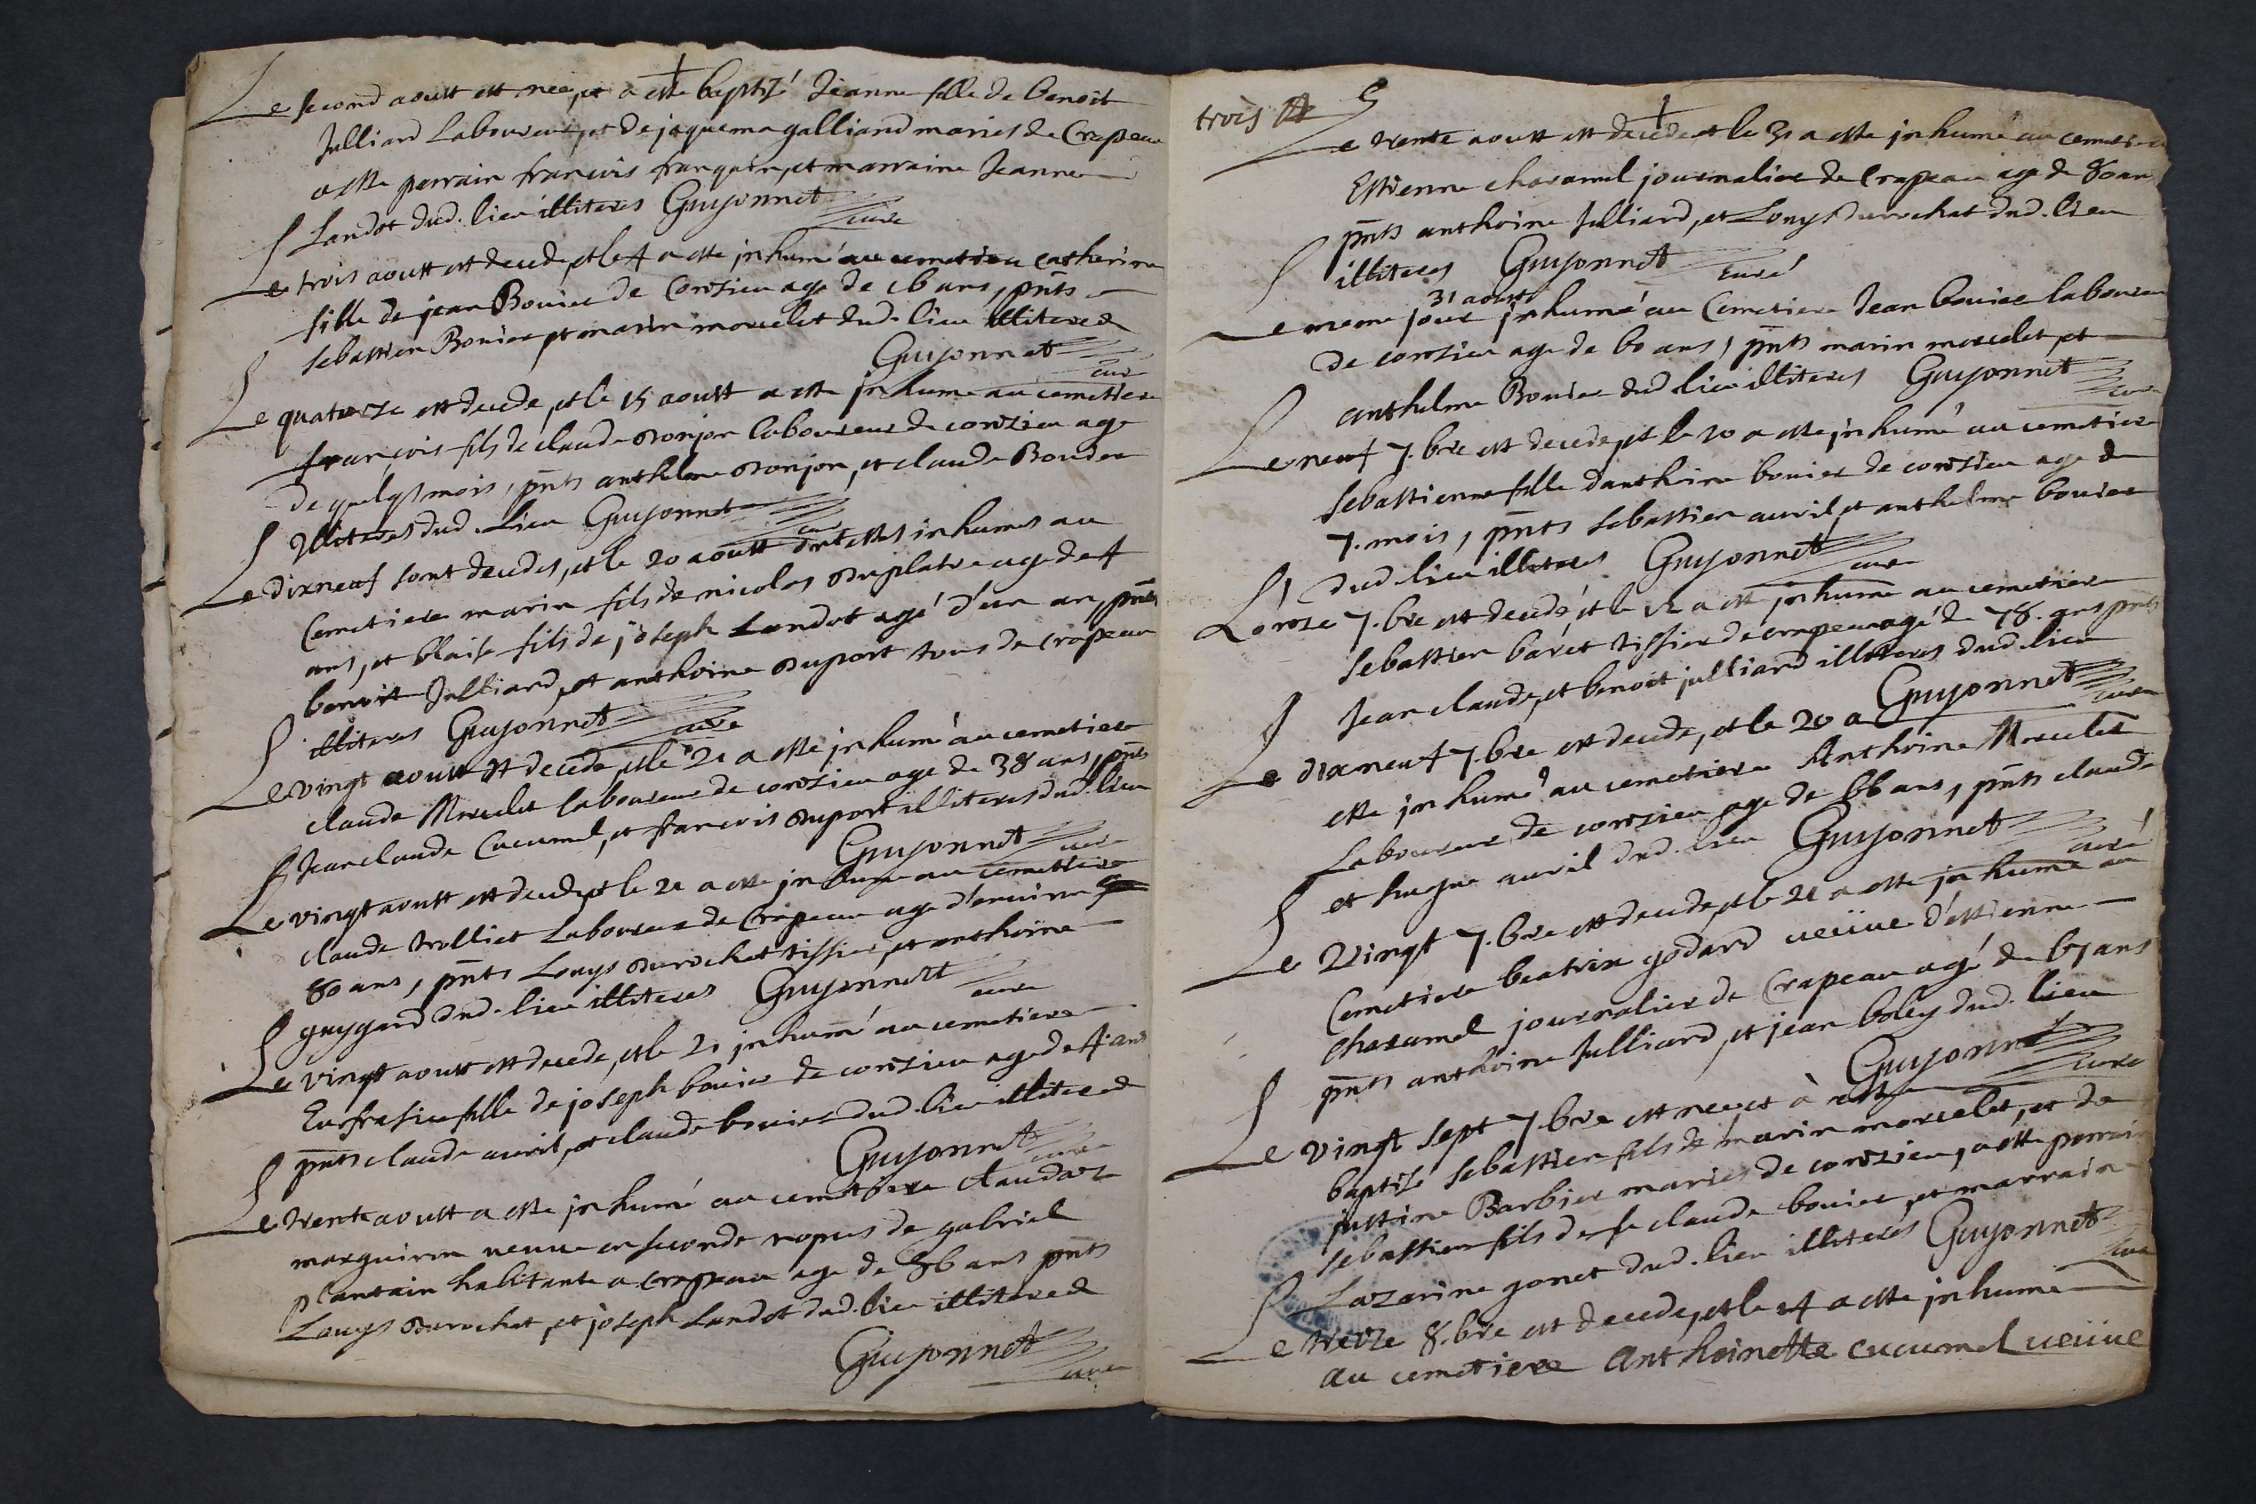 Le second aoust est née, et a esté baptizé Jeanne fille de Benoit
Julliard Laboureur, et de jaquema galliand mariés de Crapeau
a esté perrain francois franquin, et marraine Jeanne
Landot dud. lieu illiteres Guyonnet curé
Le trois aoust est decede, et le 4 a esté inhumé au cemetiere catherine
fille de jean Bouier de Contzieu age de 16 ans, pnts
sebastien Bouier, et marin morcelet dud. lieu illiteres
Guyonnet curé
Le quatorze est decede, et le 15 aoust a esté inhume au cemetiere
francois fils de claude donjon laboureur de contzieu age
de quelqs mois, pnts anthelme donjon, et claude Bouder
illiteres dud. Lieu Guyonnet curé
Le dixneuf sont decedes, et le 20 aoust ont estes inhumes au
Cemetiere marin fils de nicolas duplatre age de 4
ans, et blaise fils de joseph Landot agé d'un an, pnts
benoit Julliard, et anthoine duport tous de crapeau
illiteres Guyonnet curé
Le vingt aoust est decede, et le 21 a esté inhumé au cemetiere
claude Morcelet laboureur de contzieu age de 38 ans, pnts
Jean claude Cucumel, et francois duport illiteres dud. lieu
Guyonnet curé
Le vingt aoust est decede, et le 21 a esté inhume au cemetiere
claude trolliet Laboureur de Crapeau age d'environ
80 ans, pnts Louys durochat tissier, et anthoine
guygard dud. lieu illiteres Guyonnet curé
Le vingt aoust est decede, et le 21 inhumé au cemetiere
Eurfrasie fille de joseph bouier de contzieu age de 4 ans
pnts claude avril, et claude bouier dud. lieu illiteres
Guyonnet curé
Le trente aoust a esté inhumé au cemetiere claudaz
marguiron veuve en seconde nopces de gabriel
plantain habitante a crapeau age de 86 ans pnts
Louys durochat, et joseph Landot dud. lieu illiteres
Guyonnet curé
trois
Le trente aoust est decede et le 31 a esté inhumé au cemetiere
Estienne charamel journalier de Crapeau age de 80 ans
pnts anthoine Julliard, et Louys durochat dud. lieu
illiteres Guyonnet curé
31 aoust
Le meme jour inhumé au Cemetiere Jean bouier laboureur
de contzieu age de 60 ans, pnts marin morcelet, et
anthelme Bouier dud lieu illiteres Guyonnet curé
Le neuf 7.bre est decede, et le 10 a esté inhumé au cemetiere
sebastienne fille d'anthoine bouier de contzieu age de
7. mois, pnts sebastien avril, et anthelme bouier
dud lieu illiteres Guyonnet curé
L'onze 7.bre est decedé et le 12 a esté inhumé au cemetiere
sebastien baret tissier de crapeau agé de 78. ans pnts
Jean claude, et benoit julliard illiteres dud. lieu
Guyonnet curé
Le dixneuf 7.bre est decede, et le 20 a
esté inhumé au cemetiere Anthoine Morcelet
Laboureur de contzieu age de 66 ans, pnts claude
et hugue avril dud. lieu Guyonnet curé
Le Vingt 7.bre est decede, et le 21 a esté inhumé au
Cemetiere beatrix godard veuve d'estienne
Charamel journalier de Crapeau agé de 67 ans
pnts anthoine Julliard, et jean boley dud. lieu
Guyonnet curé
Le vingt sept 7.bre est nee et à esté
baptise sebastien fils de marin morcelet, et de
justine Barbier mariés de contzieu, a esté perrain
sebastien fils de fe claude bouier, et marraine
Lazarine gonet dud. lieu illiteres Guyonnet curé
Le treize 8.bre est decede, et le 14 a esté inhumé
au cemetiere Anthoinette cucumel veuve